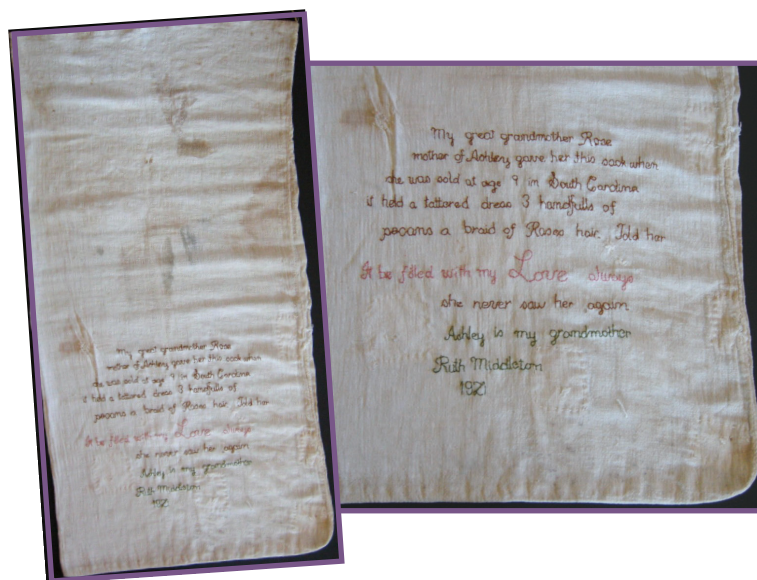 My great grandmother Rose
mother of Ashley gave her this sack when
she was sold at age 9 in South Carolina
it held a tattered dress 3 handfulls of
pecans a braid of Roses hair. Told her
It be filled with my Love always
she never saw her again
Ashley is my grandmother
Ruth Middleton
1921
My great grandmother Rose
mother of Ashley gave her this sack when
she was sold at age 9 in South Carolina
it held a tattered dress 3 handfulls of
pecans a braid of Roses hair. Told her
It be filled with my Love always
she never saw her again
Ashley is my grandmother
Ruth Middleton
1921